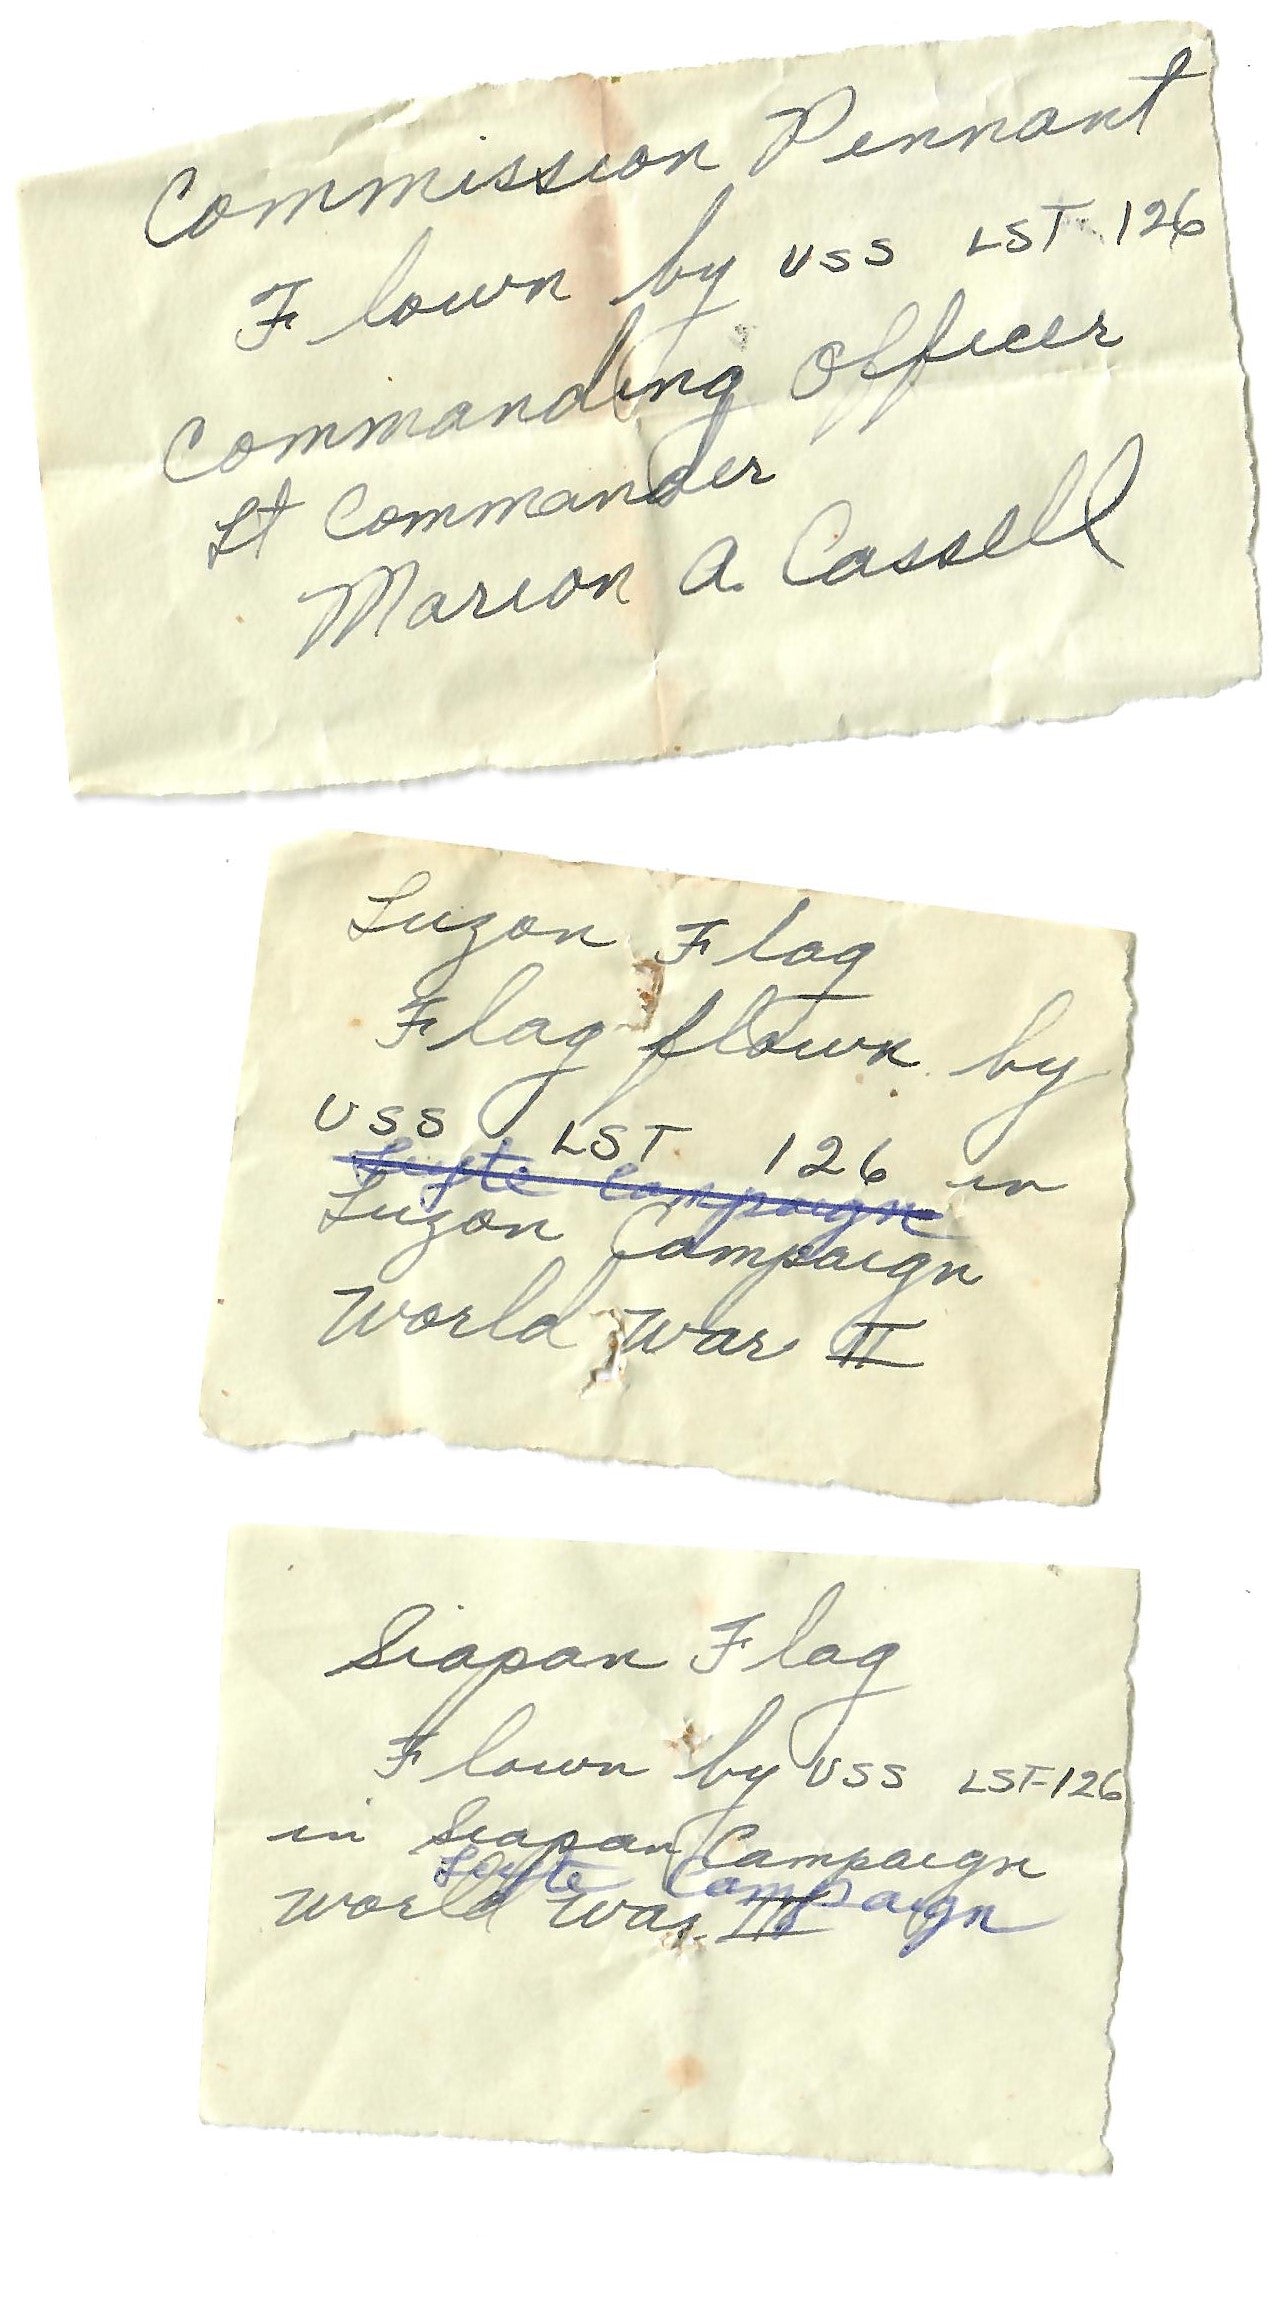 Commission Pennant
Flown by USS LST-126
Commanding Officer
Lt Commander
Marion A. Cassell
Luzon Flag
Flag flown by
USS LST. 126 in
Leyte Campaign
Luzon Campaign
World War II
Siapan Flag
Flown by USS LST-126
in Siapan Campaign
Leyte Campaign
World War II